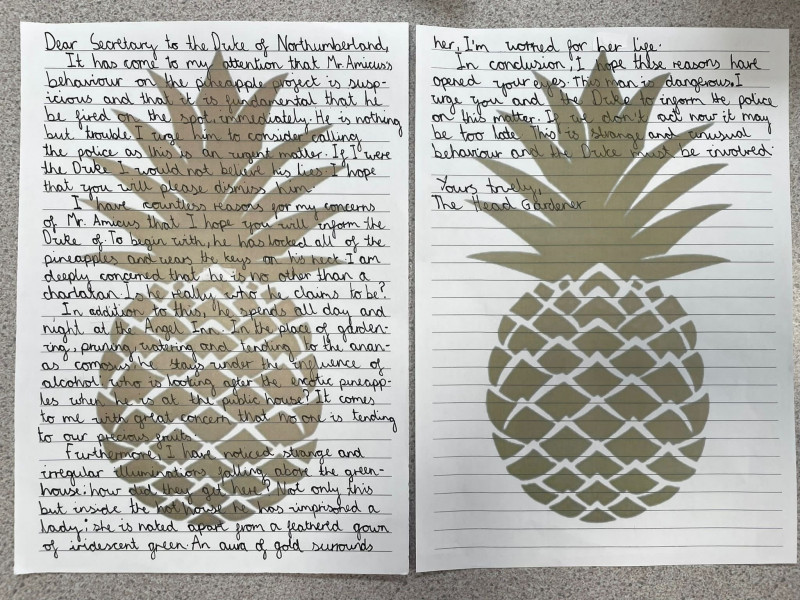 Dear Secretary to the Duke of Northumberland,
It has come to my attention that Mr. Amicus's
behaviour on the pineapple project is susp-
icious and that it is fundamental that he
be fired on the spot, immediately. He is nothing
but trouble. I urge him to consider calling
the police as this is an urgent matter. If I were
the Duke I would not believe his lies. I hope
that you will please dismiss him.
I have countless reasons for my concerns
of Mr. Amicus that I hope you will inform the
Duke of. To begin with, he has locked all of the
pineapples and wears the keys on his neck. I am
deeply concerned that he is no other than a
charlatan. Is he really who he claims to be?
In addition to this, he spends all day and
night at the Angel Inn. In the place of garden-
ing, pruning, watering and tending to the anan-
as comosus he stays under the influence of
alcohol. who is looking after the exotic pineapp-
les when he is at the public house? It comes
to me with great concern that no one is tending
to our precious fruits.
Furthermore, I have noticed strange and
irregular illuminations falling above the green-
house; how did they get here? Not only this
but inside the hot house he has imprisoned a
lady; she is naked apart from a feathered gown
of iridescent green. An aura of gold surrounds
her, I'm worried for her life.
In conclusion, I hope these reasons have
opened your eyes. This man is dangerous, I
urge you and the Duke to inform the police
on this matter. If we don't act now it may
be too late. This is strange and unusual
behaviour and the Duke must be involved.
Yours truely,
The Head Gardener